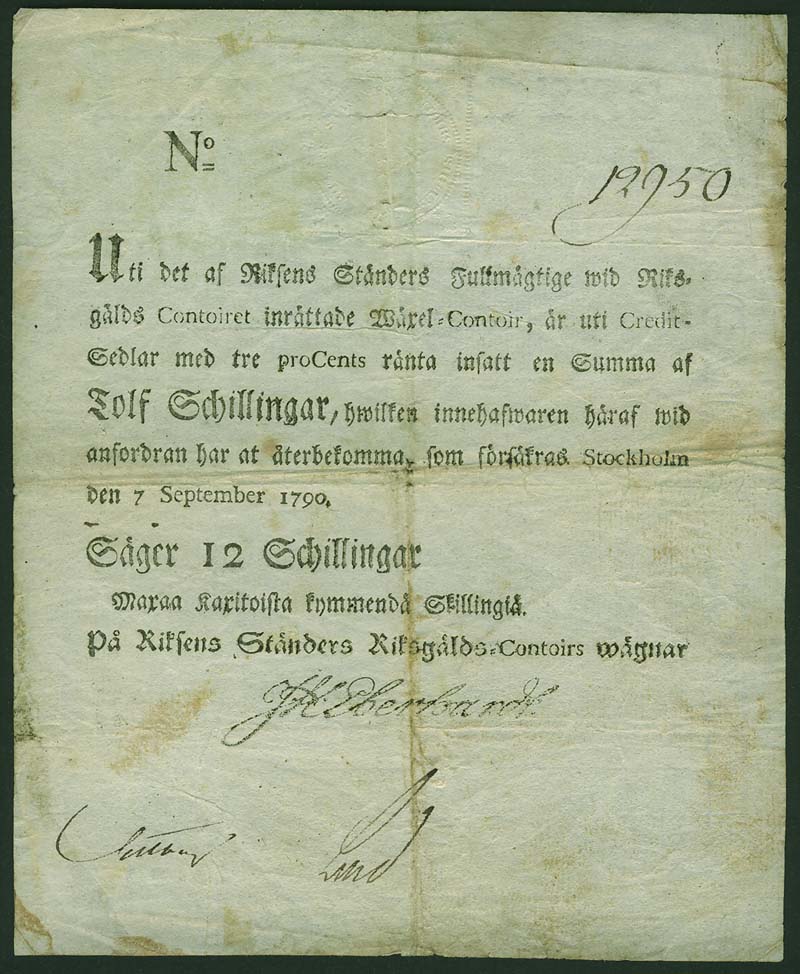 No
12950
Uti det af Riksens Ständers Fullmägtige wid Riks-
gälds Contoiret inrättade Wäxel-Contoir, är uti Credit-
Sedlar med tre proCents ränta insatt en Summa af
Tolf Schillingar, hwilken innehafwaren häraf wid
anfordran har at återbekomma, som försäkras. Stockholm
den 7 September 1790.
Säger 12 Schillingar
Maxaa Kaxitoista kymmendä Skillingiä.
På Riksens Ständers Riksgälds-Contoirs wägnar
Eberhardt.